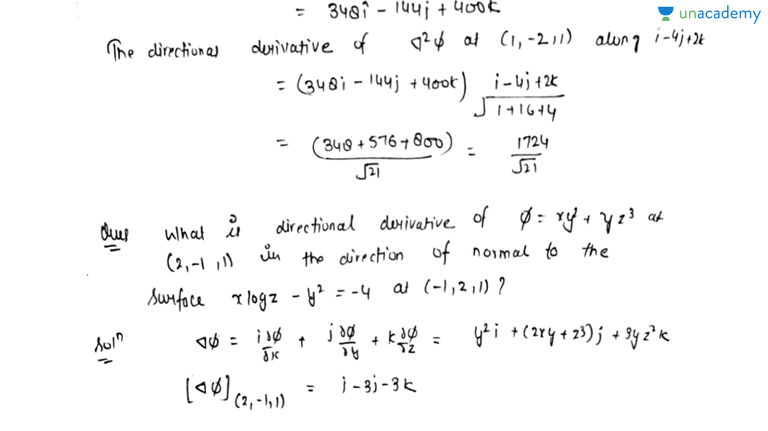 = 348î - 144j + 400k
unacademy
The directional derivative of ∇²ϕ at (1, -2, 1) along i-4j+2k
= (348i - 144j + 400k) (i-4j+2k)/√(1+16+4)
= (348+576+800)/√21 = 1724/√21
Ques What is directional derivative of ϕ = xy² + yz³ at
(2, -1, 1) in the direction of normal to the
surface x log z - y² = -4 at (-1, 2, 1) ?
Solⁿ ∇ϕ = i ∂ϕ/∂x + j ∂ϕ/∂y + k ∂ϕ/∂z = y²i + (2xy + z³)j + 3yz²k
[∇ϕ](2,-1,1) = i - 3j - 3k